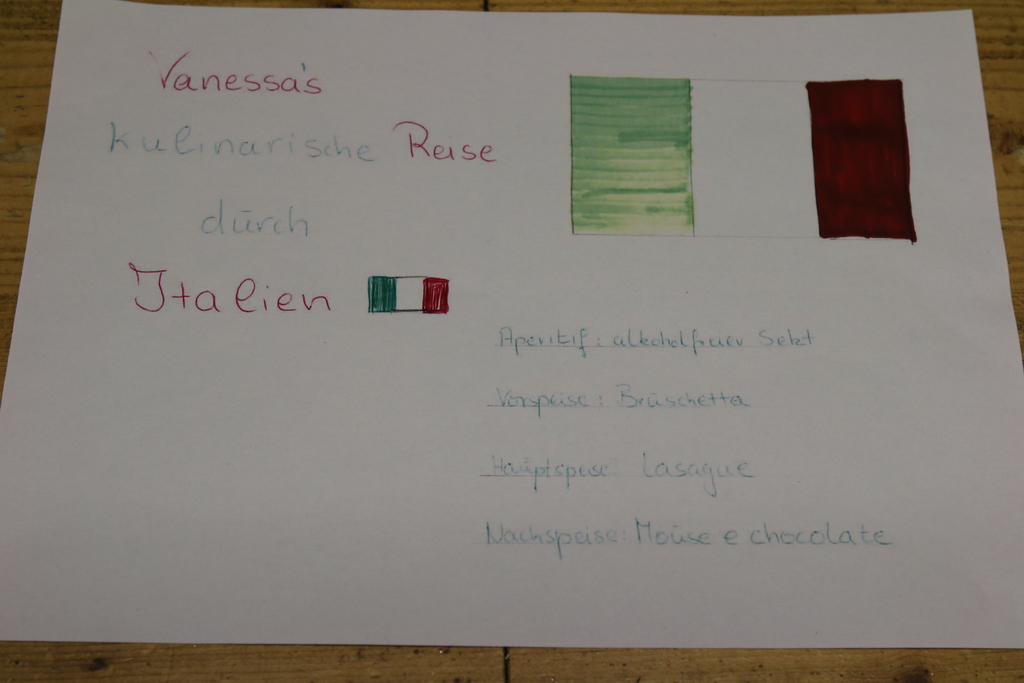 Vanessa's
kulinarische Reise
dürch
Italien
Aperitif: alkoholfreier Sekt
Vorspeise: Brüschetta
Haüptspeise: Lasagne
Nachspeise: Moüse e chocolate